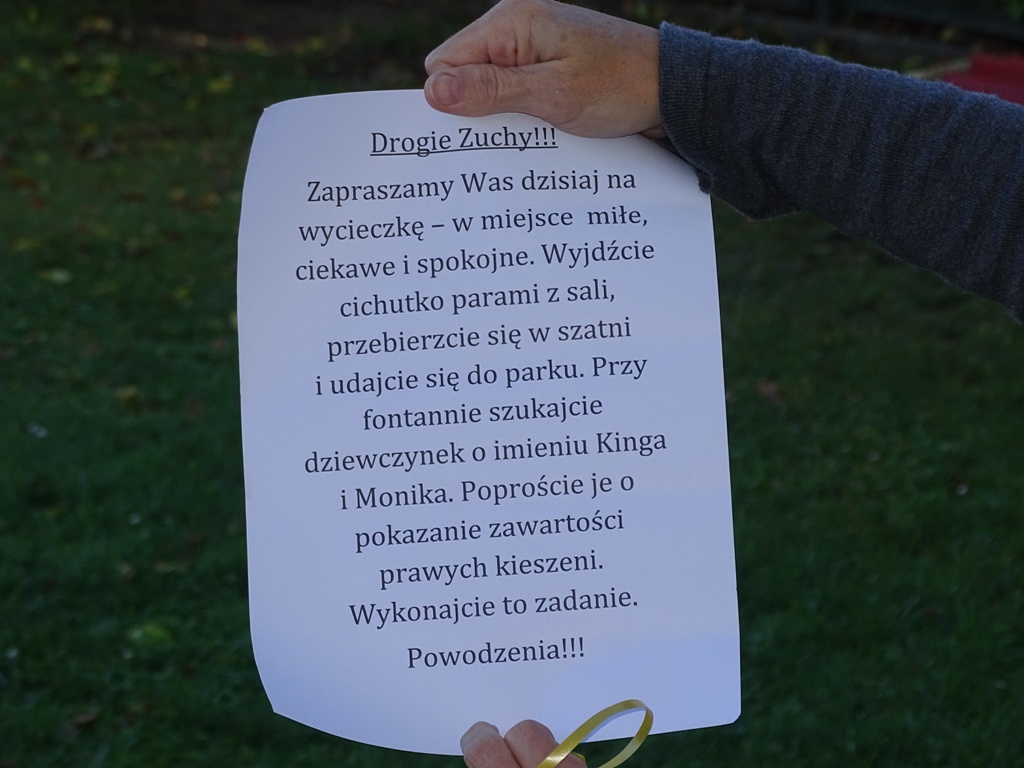 Drogie Zuchy!!!
Zapraszamy Was dzisiaj na
wycieczkę – w miejsce miłe,
ciekawe i spokojne. Wyjdźcie
cichutko parami z sali,
przebierzcie się w szatni
i udajcie się do parku. Przy
fontannie szukajcie
dziewczynek o imieniu Kinga
i Monika. Poproście je o
pokazanie zawartości
prawych kieszeni.
Wykonajcie to zadanie.
Powodzenia!!!